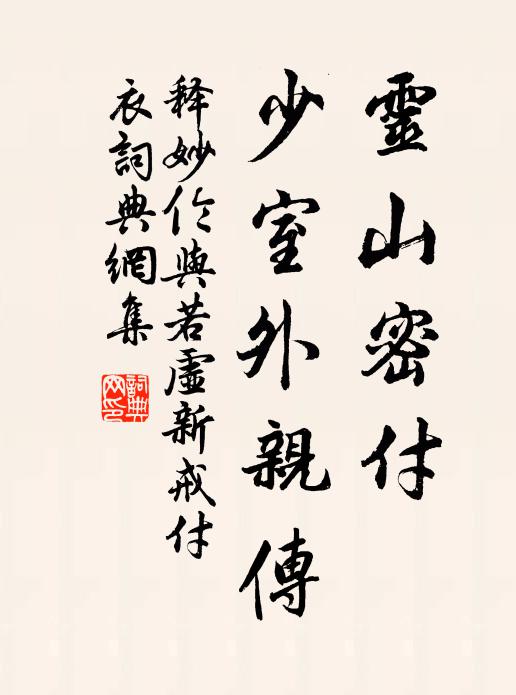 靈山密付
少室外親傳
释妙伦與若虛新戒付
衣詞典網集
詞典网印